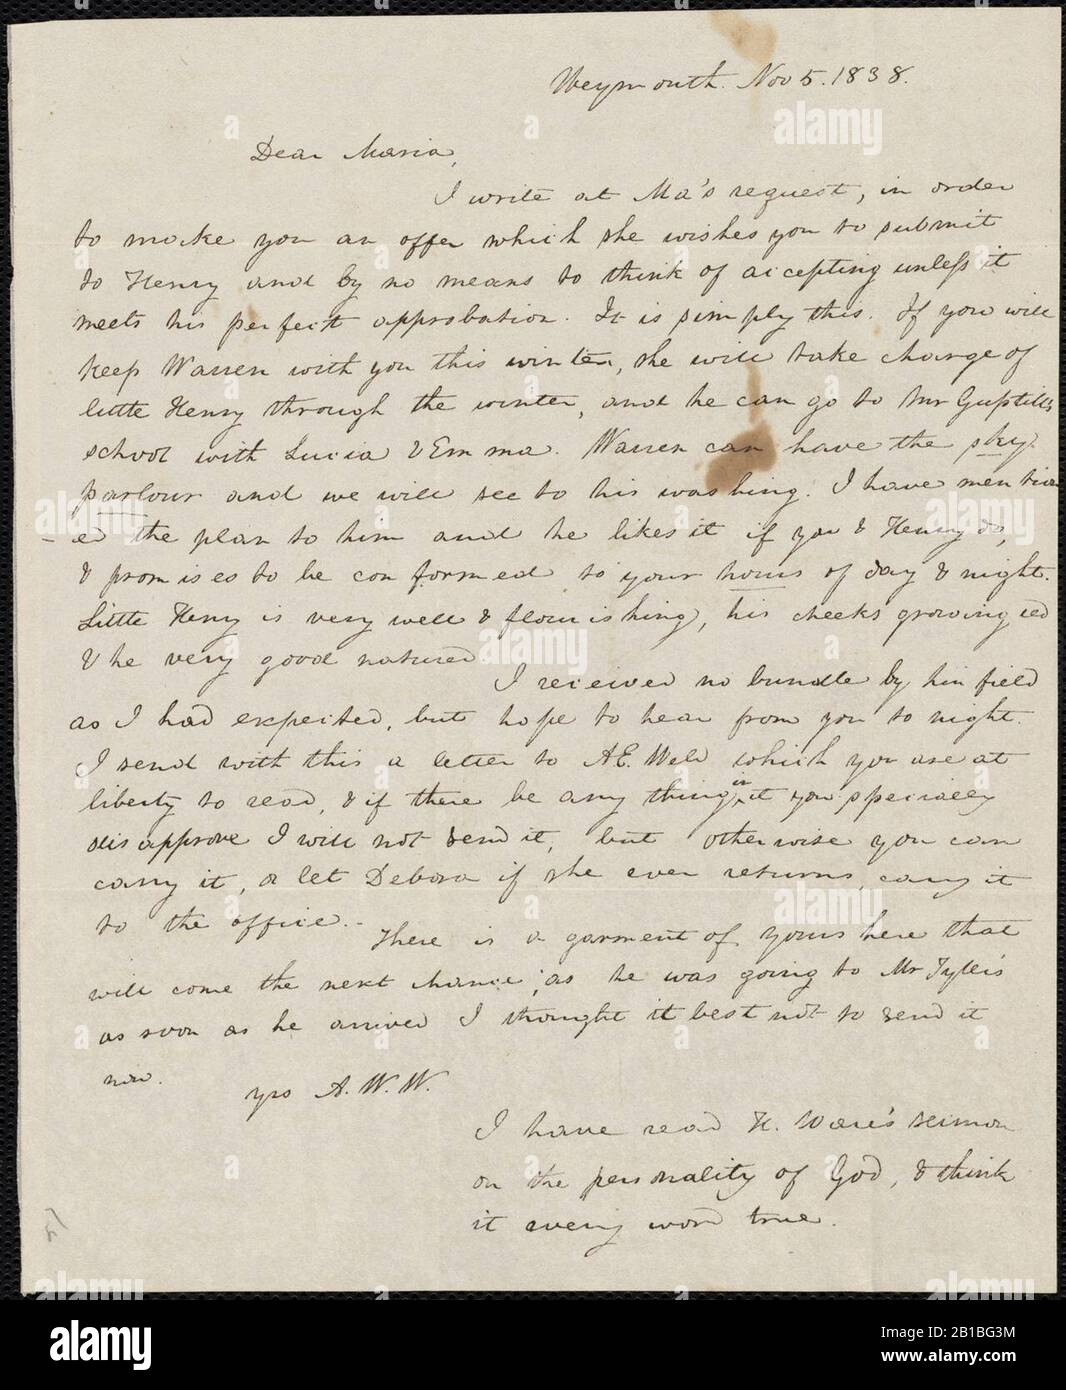 Weymouth. Nov 5. 1838.
Dear Maria,
I write at Ma's request, in order
to make you an offer which she wishes you to submit
to Henry and by no means to think of accepting unless it
meets his perfect approbation. It is simply this. If you will
keep Warren with you this winter, she will take charge of
little Henry through the winter, and he can go to Mr Guptill's
school with Lucia & Emma. Warren can have the sky
parlour and we will see to his washing. I have mention
-ed the plan to him and he likes it if you & Henry do,
& promises to be conformed to your hours of day & night.
Little Henry is very well & flourishing, his cheeks growing red
& he very good natured
I received no bundle by hin field
as I had expected, but hope to hear from you to night.
I send with this a letter to A E. Weld which you are at
liberty to read, & if there be any thing in it you specially
disapprove I will not send it, but otherwise you can
carry it, or let Debora if she ever returns, carry it
to the office.-
There is a garment of yours here that
will come the next chance; as he was going to Mr Tyler's
as soon as he arrived I thought it best not to send it
now.
yrs A. W. W.
I have read H. Ware's sermon
on the personality of God, & think
it every word true.
alamy
Image ID: 2B1BG3M
www.alamy.com